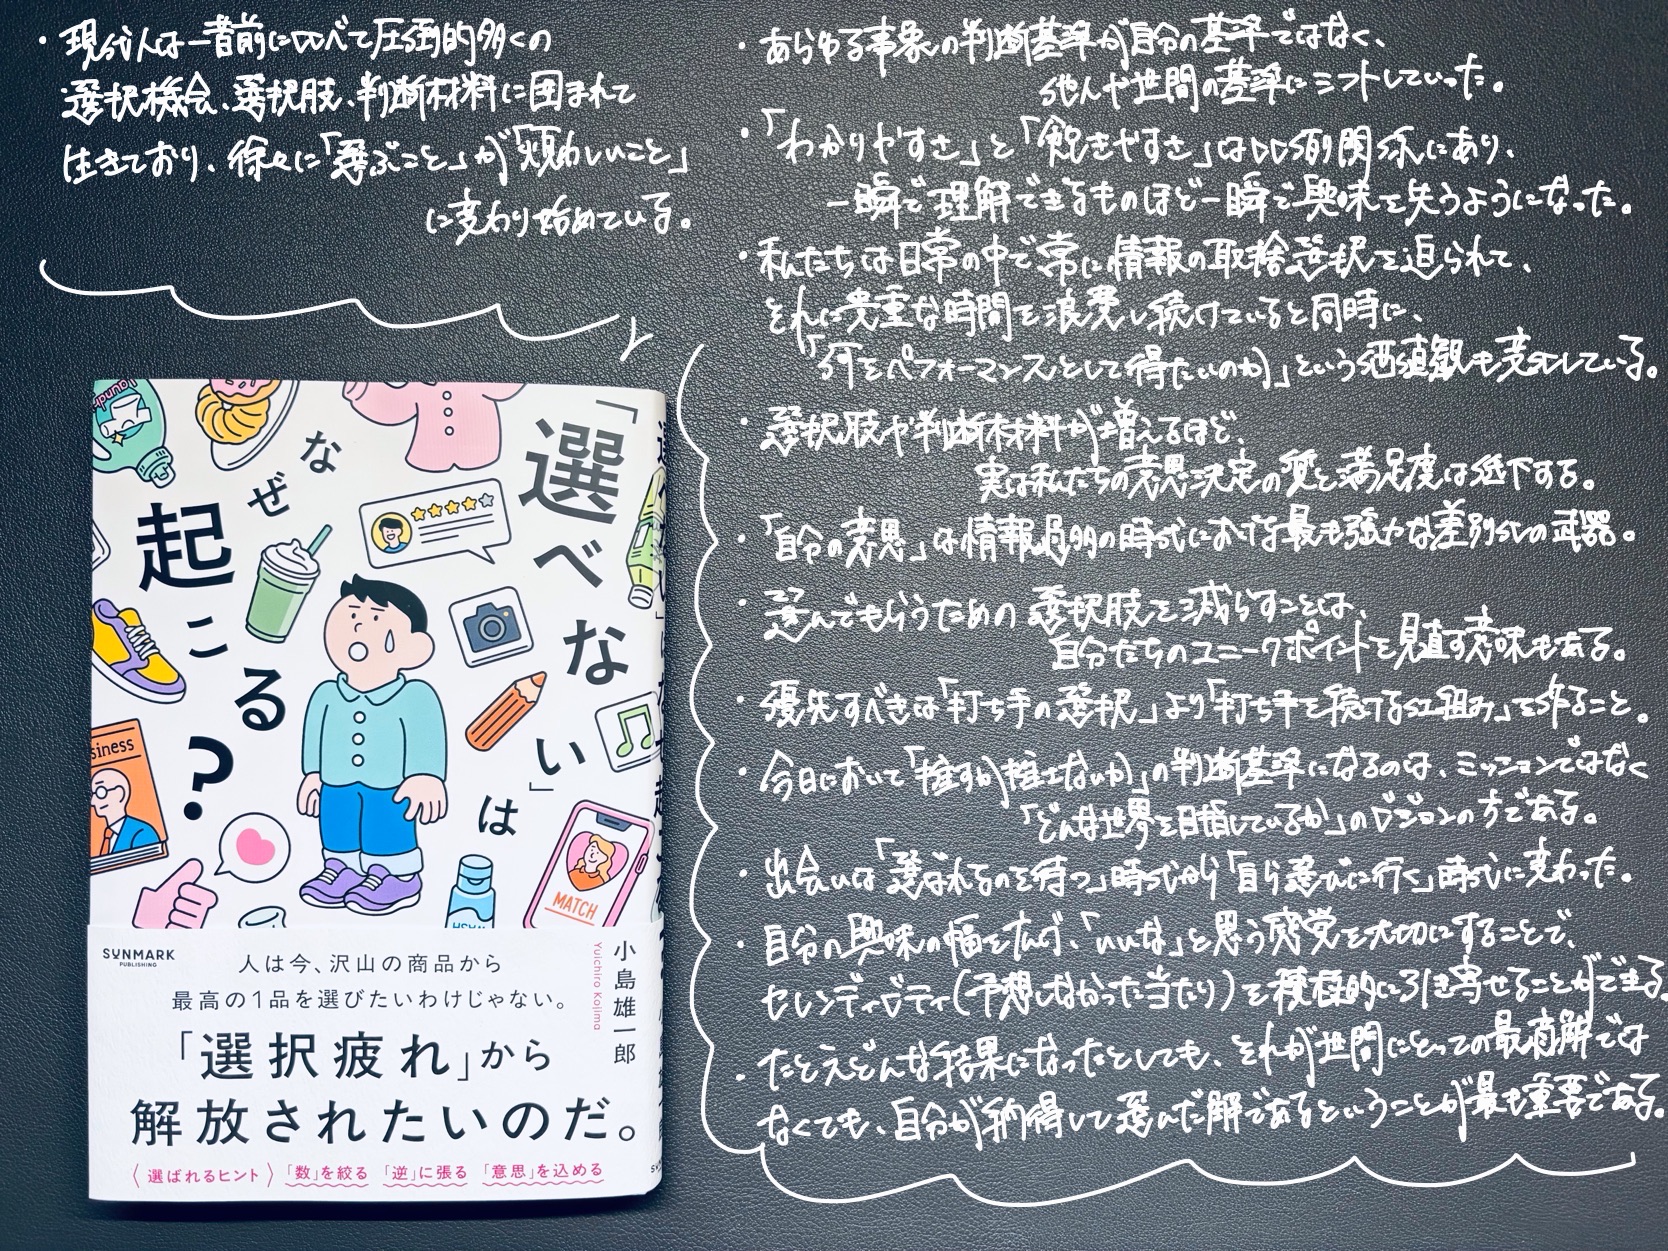 ・現代人は一昔前に比べて圧倒的多くの
選択機会、選択肢、判断材料に囲まれて
生きており、徐々に「選ぶこと」が「煩わしいこと」
に変わり始めている。
・あらゆる事象の判断基準が自分の基準ではなく、
他人や世間の基準にシフトしていった。
・「わかりやすさ」と「飽きやすさ」は比例関係にあり、
一瞬で理解できるものほど一瞬で興味を失うようになった。
・私たちは日常の中で常に情報の取捨選択を迫られて、
それに貴重な時間を浪費し続けていると同時に、
「何をペフォーマンスとして得たいのか」という価値観も変化している。
・選択肢や判断材料が増えるほど、
実は私たちの意思決定の質と満足度は低下する。
・「自分の意思」は情報過多の時代における最も強力な差別化の武器。
・選んでもらうための選択肢を減らすことは、
自分たちのユニークポイントを見直す意味もある。
・優先すべきは「打ち手の選択」より「打ち手を続ける仕組み」を作ること。
・今日において「推すか推さないか」の判断基準になるのは、ミッションではなく
「どんな世界を目指しているか」のビジョンの方である。
・出会いは「選ばれるのを待つ」時代から「自ら選びに行く」時代に変わった。
・自分の興味の幅を広げ、「いいな」と思う感覚を大切にすることで、
セレンディピティ(予想しなかった当たり)を積極的に引き寄せることができる。
・たとえどんな結果になったとしても、それが世間にとっての最適解では
なくても、自分が納得して選んだ解であるということが最も重要である。
「選べない」は
なぜ
起こる?
Laundry
business
MATCH
小島雄一郎
Yuichiro Kojima
SUNMARK
PUBLISHING
人は今、沢山の商品から
最高の1品を選びたいわけじゃない。
「選択疲れ」から
解放されたいのだ。
〈選ばれるヒント〉「数」を絞る 「逆」に張る 「意思」を込める